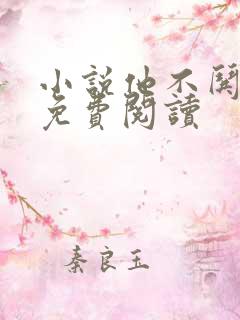 小說他不關
免費閱讀
秦良玉